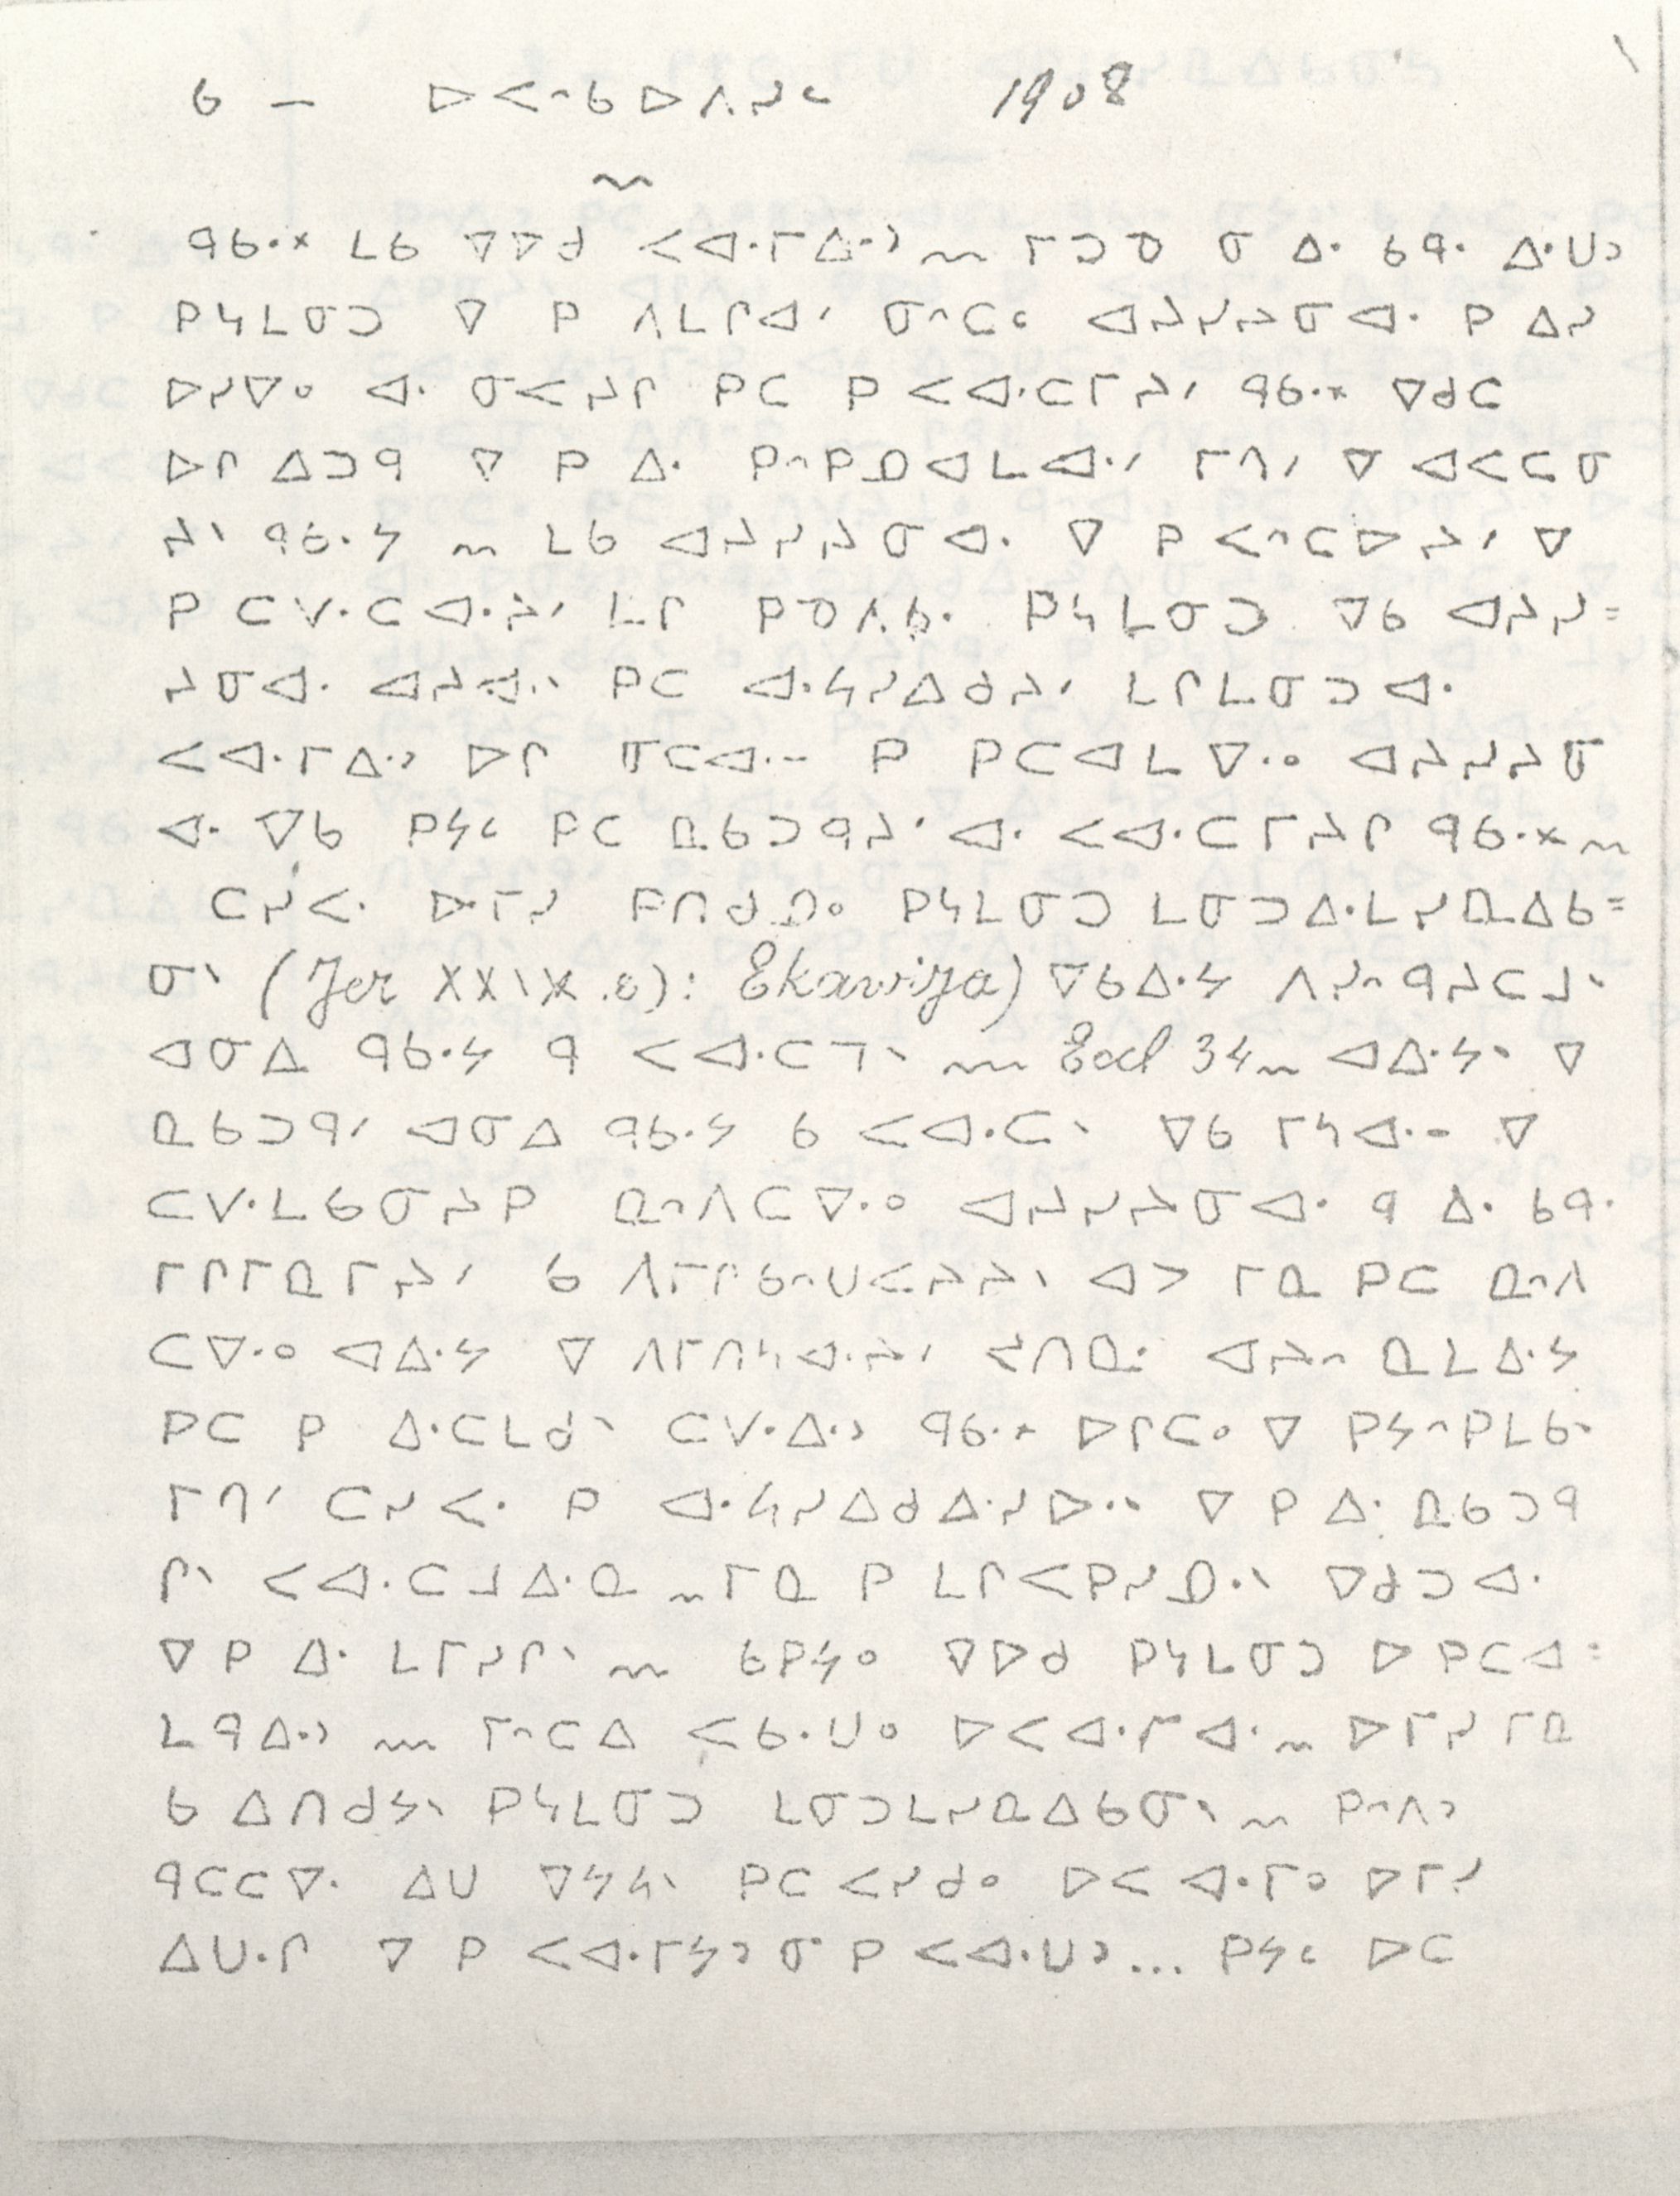 6 — ᐅᐸᐢᑲᐅᐱᓯᒼ 1908
ᑫᑲᐧᕽ ᒪᑲ ᐁᐅᑯ ᐸᐊᐧᒥᐃᐧᐣ ~ ᒥᑐᓀ ᓂ ᐃᐧ ᑲᑫᐧ ᐃᐧᑌᐣ
ᑭᓴᒪᓂᑐ ᐁ ᑭ ᐱᒪᒋᐊᐟ ᓂᐢᑕᒼ ᐊᔨᓯᔨᓂᐊᐧ ᑭ ᐃᓯ
ᐅᓯᐁᐤ ᐊᐧ ᓂᐸᔨᒋ ᑭᑕ ᑭ ᐸᐊᐧᑕᒥᔨᐟ ᑫᑲᐧᕽ ᐁᑯᑕ
ᐅᒋ ᐃᑐᑫ ᐁ ᑭ ᐃᐧ ᑭᐢᑭᓄᐊᒪᐊᐧᐟ ᒥᐱᐟ ᐁ ᐊᐸᑕᓂ
ᔨᐠ ᑫᑲᐧᔭ ~ ᒪᑲ ᐊᔨᓯᔨᓂᐊᐧ ᐁ ᑭ ᐸᐢᑕᐅᔨᐟ ᐁ
ᑭ ᑕᐯᐧᑕᐊᐧᔨᐟ ᒪᒋ ᑭᓀᐱᑲᐧ ᑭᓴᒪᓂᑐ ᐁᑲ ᐊᔨᓯ=
ᔨᓂᐊᐧ ᐊᔨᐊᐧᐠ ᑭᑕ ᐊᐧᔭᓯᐃᑯᔨᐟ ᒪᒋᒪᓂᑐᐊᐧ
ᐸᐊᐧᒥᐃᐧᐣ ᐅᒋ ᐱᑕᐊᐧ⁻ ᑭ ᑭᑕᐊᒪᐁᐧᐤ ᐊᔨᓯᔨᓂ
ᐊᐧ ᐁᑲ ᑭᔭᒼ ᑭᑕ ᓇᑲᑐᑫᔨᐟ ᐊᐧ ᐸᐊᐧᑕᒥᔨᒋ ᑫᑲᐧᕽ ~
ᑕᓯᐸᐧ ᐅᒥᓯ ᑭᑎᑯᓇᐤ ᑭᓴᒪᓂᑐ ᒪᓂᑐᐃᐧᒪᓯᓇᐃᑲ=
ᓂᐠ (Jer XXIX.8): Ekawiya) ᐁᑲᐃᐧᔭ ᐱᓯᐢᑫᔨᑕᒧᐠ
ᐊᓂᐃ ᑫᑲᐧᔭ ᑫ ᐸᐊᐧᑕᒣᐠ ~ Eccl 34 ~ ᐊᐃᐧᔭᐠ ᐁ
ᓇᑲᑐᑫᐟ ᐊᓂᐃ ᑫᑲᐧᔭ ᑲ ᐸᐊᐧᑕᐠ ᐁᑲ ᒥᓴᐊᐧ⁻ ᐁ
ᑕᐯᐧᒪᑲᓂᔨᑭ ᓇᐢᐱᑕᐁᐧᐤ ᐊᔨᓯᔨᓂᐊᐧ ᑫ ᐃᐧ ᑲᑫᐧ
ᒥᒋᒥᓇᒥᔨᐟ ᑲ ᐱᒥᒋᑲᐢᑌᐸᔨᔨᐠ ᐊᐳ ᒥᓇ ᑭᑕ ᓇᐢᐱ
ᑕᐁᐧᐤ ᐊᐃᐧᔭ ᐁ ᐱᒥᑎᓴᐊᐧᔨᐟ ᔪᑎᓇᐧ ᐊᔨᐢ ᓇᒪᐃᐧᔭ
ᑭᑕ ᑭ ᐃᐧᑕᒪᑯᐠ ᑕᐯᐧᐃᐧᐣ ᑫᑲᐧᕽ ᐅᒋᑕᐤ ᐁ ᑭᔭᐢᑭᒪᑲᐠ
ᒥᐱᐟ ᑕᓯᐸᐧ ᑭ ᐊᐧᔭᓯᐃᑯᐃᐧᓯᐅᐧᐠ ᐁ ᑭ ᐃᐧ ᓇᑲᑐᑫ
ᒋᐠ ᐸᐊᐧᑕᒧᐃᐧᓇ ~ ᒥᓇ ᑭ ᒪᒋᐸᑭᓯᓄᐧᐠ ᐁᑯᑐᐊᐧ
ᐁ ᑭ ᐃᐧ ᒪᒥᓯᒋᐠ ~ ᑲᑭᔭᐤ ᐁᐅᑯ ᑭᓴᒪᓂᑐ ᐅ ᑭᑕᐊ=
ᒪᑫᐃᐧᐣ ~ ᒥᐢᑕᐃ ᐸᑲᐧᑌᐤ ᐅᐸᐊᐧᒥᐊᐧ ~ ᐅᒥᓯ ᒥᓇ
ᑲ ᐃᑎᑯᔭᐠ ᑭᓴᒪᓂᑐ ᒪᓂᑐᒪᓯᓇᐃᑲᓂᐠ ~ ᑭᐢᐱᐣ
ᑫᑕᑕᐁᐧ ᐃᑌ ᐁᔭᔭᐠ ᑭᑕ ᐸᓯᑯᐤ ᐅᐸᐊᐧᒥᐤ ᐅᒥᓯ
ᐃᑌᐧᒋ ᐁ ᑭ ᐸᐊᐧᒥᔭᐣ ᓂ ᑭ ᐸᐊᐧᑌᐣ... ᑭᔭᒼ ᐅᑕ